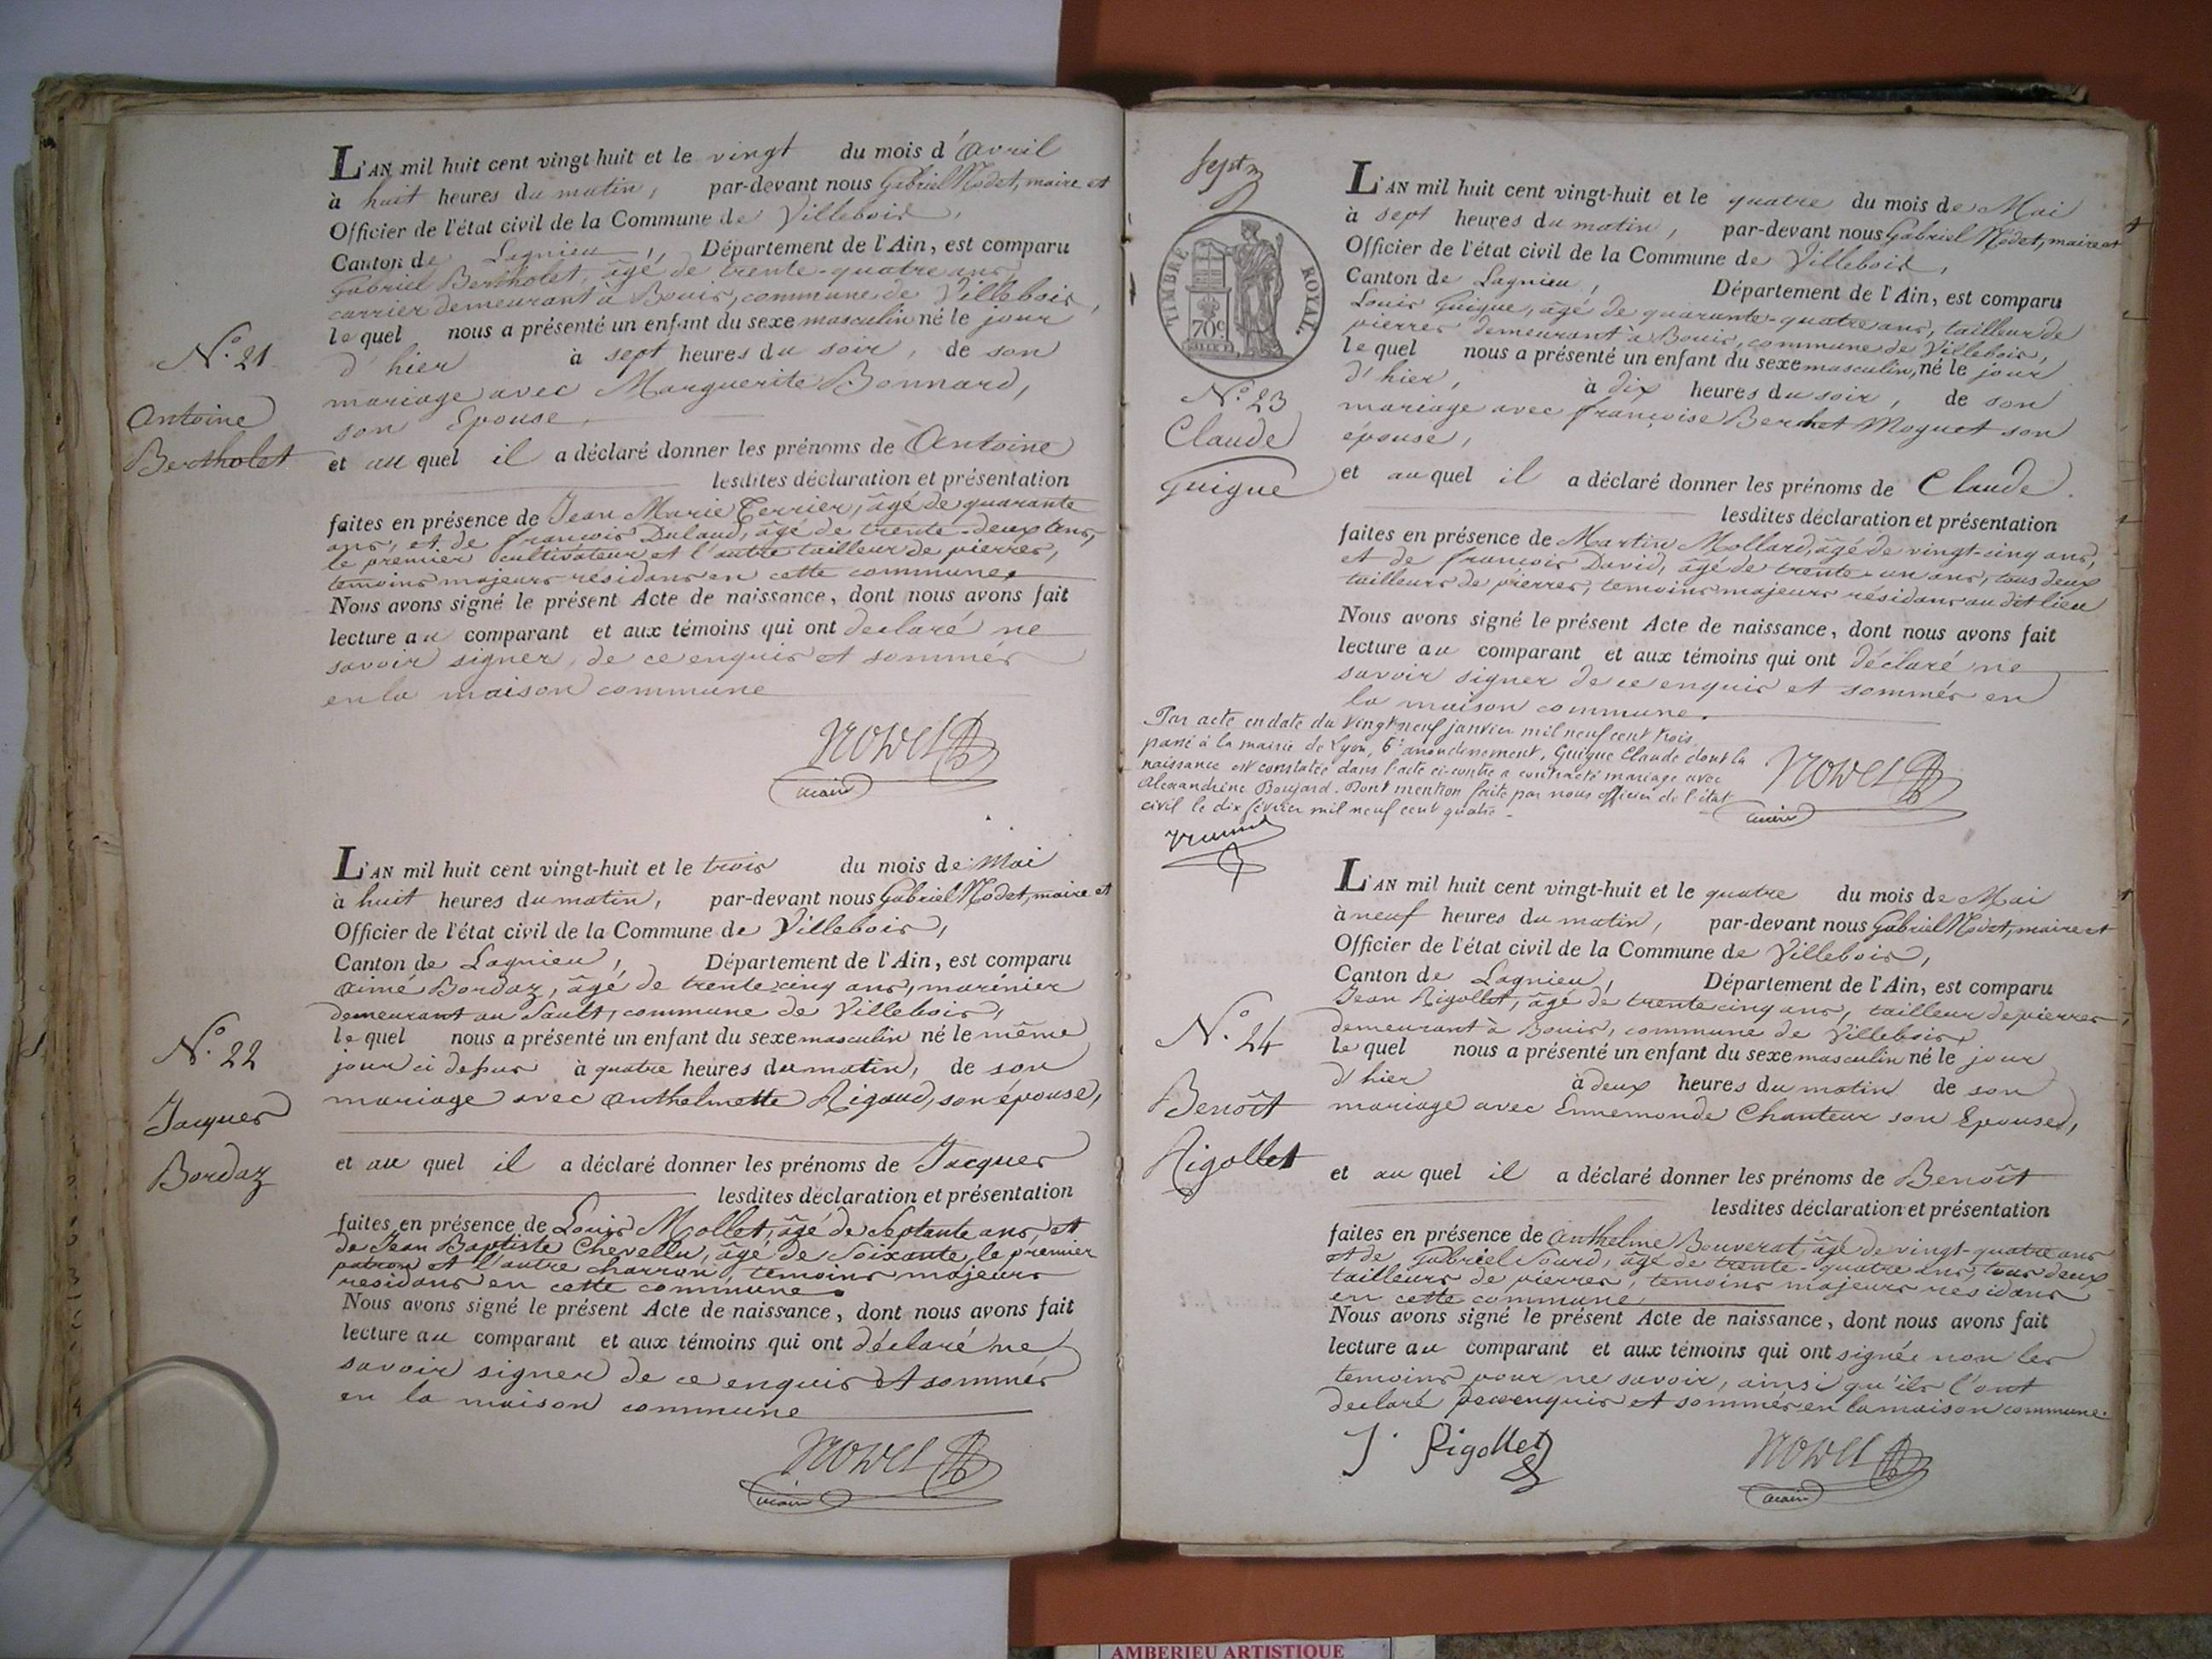 L'AN mil huit cent vingt-huit et le vingt du mois d'Avril
à huit heures du matin, par-devant nous Gabriel Nodet, maire et
Officier de l'état civil de la Commune de Villebois,
Canton de Lagnieu, Département de l'Ain, est comparu
Gabriel Bertholet, âgé de trente-quatre ans,
carrier demeurant à Bouis, commune de Villebois,
lequel nous a présenté un enfant du sexe masculin né le jour
d'hier à sept heures du soir, de son
mariage avec Marguerite Bonnard,
son Epouse,
et au quel il a déclaré donner les prénoms de Antoine
lesdites déclaration et présentation
faites en présence de Jean Marie Terrier, âgé de quarante
ans, et de françois Dulaud, âgé de trente-deux ans,
le premier cultivateur et l'autre tailleur de pierres,
temoins majeurs résidans en cette commune.
Nous avons signé le présent Acte de naissance, dont nous avons fait
lecture au comparant et aux témoins qui ont declaré ne
savoir signer, de ce enquis et sommés
en la maison commune
maire
N.° 21
Antoine
Bertholet
L'AN mil huit cent vingt-huit et le trois du mois de Mai
à huit heures du matin, par-devant nous Gabriel Nodet, maire et
Officier de l'état civil de la Commune de Villebois,
Canton de Lagnieu, Département de l'Ain, est comparu
Aimé Bordaz, âgé de trente cinq ans, marinier
demeurant au Sault, commune de Villebois,
lequel nous a présenté un enfant du sexe masculin né le même
jour ci dessus à quatre heures du matin, de son
mariage avec Anthelmette Rigaud, son épouse,
et au quel il a déclaré donner les prénoms de Jacques
lesdites déclaration et présentation
faites en présence de Louis Mollet, âgé de Septante ans, et
de Jean Baptiste Chevellu, âgé de Soixante, le premier
patron et l'autre charron, temoins majeurs
residans en cette commune.
Nous avons signé le présent Acte de naissance, dont nous avons fait
lecture au comparant et aux témoins qui ont déclaré ne
savoir signer de ce enquis et sommés
en la maison commune
maire
N.° 22
Jacques
Bordaz
TIMBRE ROYAL.
70c
L'AN mil huit cent vingt-huit et le quatre du mois de Mai
à sept heures du matin, par-devant nous Gabriel Nodet, maire et
Officier de l'état civil de la Commune de Villebois,
Canton de Lagnieu, Département de l'Ain, est comparu
Louis Guigue, âgé de quarante-quatre ans, tailleur de
pierres demeurant à Bouis, commune de Villebois,
lequel nous a présenté un enfant du sexe masculin, né le jour
d'hier, à dix heures du soir, de son
mariage avec françoise Berchet Moguet son
épouse,
et au quel il a déclaré donner les prénoms de Claude.
lesdites déclaration et présentation
faites en présence de Martin Mollard, âgé de vingt-cinq ans,
et de françois David, âgé de trente-un ans, tous deux
tailleurs de pierres, temoins majeurs résidans au dit lieu
Nous avons signé le présent Acte de naissance, dont nous avons fait
lecture au comparant et aux témoins qui ont déclaré ne
savoir signer de ce enquis et sommés en
la maison commune.
maire
N.° 23
Claude
Guigue
Par acte en date du vingt neuf janvier mil neuf cent trois,
passé à la mairie de Lyon, 6e arrondissement, Guigue Claude dont la
naissance est constatée dans l'acte ci-contre a contracté mariage avec
Alexandrine Boujard. Dont mention faite par nous officier de l'état
civil le dix février mil neuf cent quatre.
L'AN mil huit cent vingt-huit et le quatre du mois de Mai
à neuf heures du matin, par-devant nous Gabriel Nodet, maire et
Officier de l'état civil de la Commune de Villebois,
Canton de Lagnieu, Département de l'Ain, est comparu
Jean Rigollet, âgé de trente cinq ans, tailleur de pierres,
demeurant à Bouis, commune de Villebois,
lequel nous a présenté un enfant du sexe masculin né le jour
d'hier à deux heures du matin de son
mariage avec Ennemonde Chanteur son Epouse,
et au quel il a déclaré donner les prénoms de Benoît
lesdites déclaration et présentation
faites en présence de Anthelme Bouverat, âgé de vingt-quatre ans
et de Gabriel Sourd, âgé de trente-quatre ans, tous deux
tailleurs de pierres, temoins majeurs residans
en cette commune
Nous avons signé le présent Acte de naissance, dont nous avons fait
lecture au comparant et aux témoins qui ont signée non les
temoins pour ne savoir, ainsi qu'ils l'ont
declaré de ce enquis et sommés en la maison commune.
J. Rigollet
maire
N.° 24
Benoît
Rigollet
AMBERIEU ARTISTIQUE